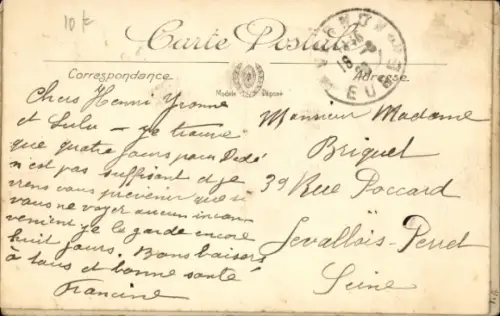 10 f
Carte Postale
Correspondance
Adresse
Modèle Déposé
EURE
Chers Henri Yvonne
et Lulu — je trouve
que quatre jours pour Dédé
n'est pas suffisant et je
viens vous prévenir que si
vous ne voyez aucun incon
venient je le garde encore
huit jours. Bons baisers
à tous et bonne santé
Francine
Monsieur Madame
Briquet
39 Rue Poccard
Levallois-Perret
Seine